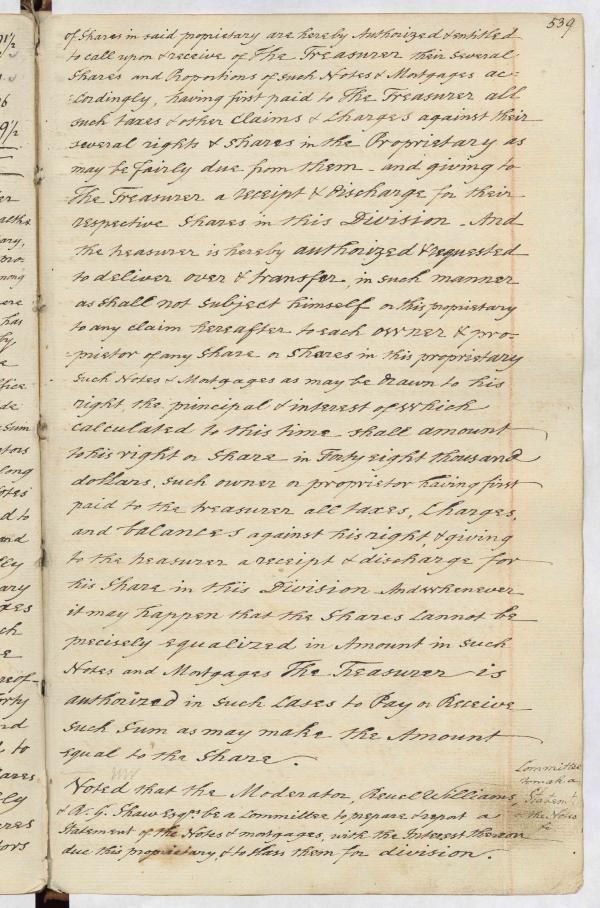 539
of Shares in said proprietary are hereby Authorized & entitled
to call upon & receive of The Treasurer their several
Shares and Proportions of such Notes & Mortgages ac-
-cordingly, having first paid to The Treasurer all
such taxes & other Claims & Charges against their
several rights & Shares in the Proprietary as
may be fairly due from them - and giving to
The Treasurer a receipt & Discharge for their
respective Shares in this Division - And
the treasurer is hereby authorized & requested
to deliver over & transfer, in such manner
as shall not subject himself or this proprietary
to any claim hereafter to each owner & pro-
-prietor of any share or shares in this proprietary
such Notes & Mortgages as may be drawn to his
right, the principal & interest of which
calculated to this time shall amount
to his right or Share in Forty eight thousand
dollars, such owner or proprietor having first
paid to the treasurer all taxes, Charges,
and balances against his right, & giving
to the treasurer a receipt & discharge for
his Share in this Division And whenever
it may happen that the Shares cannot be
precisely equalized in Amount in such
Notes and Mortgages The Treasurer is
authorized in such Cases to Pay or Receive
such Sum as may make the Amount
equal to the Share.
Voted that the Moderator, Reuel Williams,
& R. G. Shaw Esqrs be a Committee to prepare & report a
Statement of the Notes & mortgages, with the Interest thereon
due this proprietary, & to Class them for division.
Committee
to make a
Statemt
of the Notes
&c